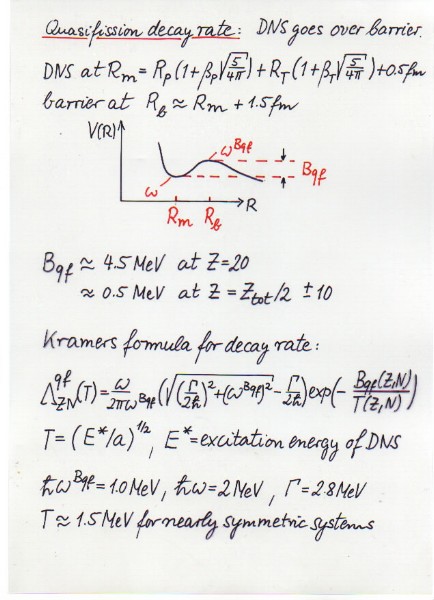 Quasifission decay rate: DNS goes over barrier.
DNS at R_m = R_P(1+β_P√(5/4π)) + R_T(1+β_T√(5/4π)) + 0.5fm
barrier at R_b ≈ R_m + 1.5fm
V(R)
ω^Bqf
B_qf
ω
R
R_m R_b
B_qf ≈ 4.5 MeV at Z=20
≈ 0.5 MeV at Z = Z_tot/2 ± 10
Kramers formula for decay rate:
Λ^qf_ZN(T) = ω/(2πω^Bqf) (√((Γ/2ħ)²+(ω^Bqf)²) - Γ/2ħ) exp(- B_qf(Z,N)/T(Z,N))
T = (E*/a)^1/2, E* = excitation energy of DNS
ħω^Bqf = 1.0 MeV, ħω = 2 MeV, Γ = 2.8 MeV
T ≈ 1.5 MeV for nearly symmetric systems